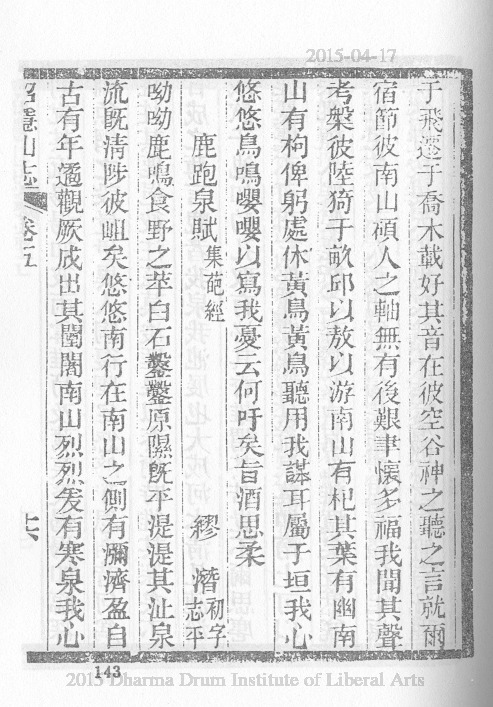 2015-04-17
于飛遷于喬木載好其音在彼空谷神之聽之言就爾
宿節彼南山碩人之軸無有後艱聿懷多福我聞其聲
考槃彼陸猗于畝邱以敖以游南山有杞其葉有幽南
山有枸俾躬處休黃鳥黃鳥聽用我謀耳屬于垣我心
悠悠鳥鳴嚶嚶以寫我憂云何吁矣旨酒思柔
鹿跑泉賦集葩經 繆 潛初字志平
呦呦鹿鳴食野之苹白石鑿鑿原隰既平湜湜其沚泉
流既清陟彼岨矣悠悠南行在南山之側有瀰濟盈自
古有年遹觀厥成出其闉闍南山烈烈爰有寒泉我心
招隱山志 卷五 十六
143
2015 Dharma Drum Institute of Liberal Arts